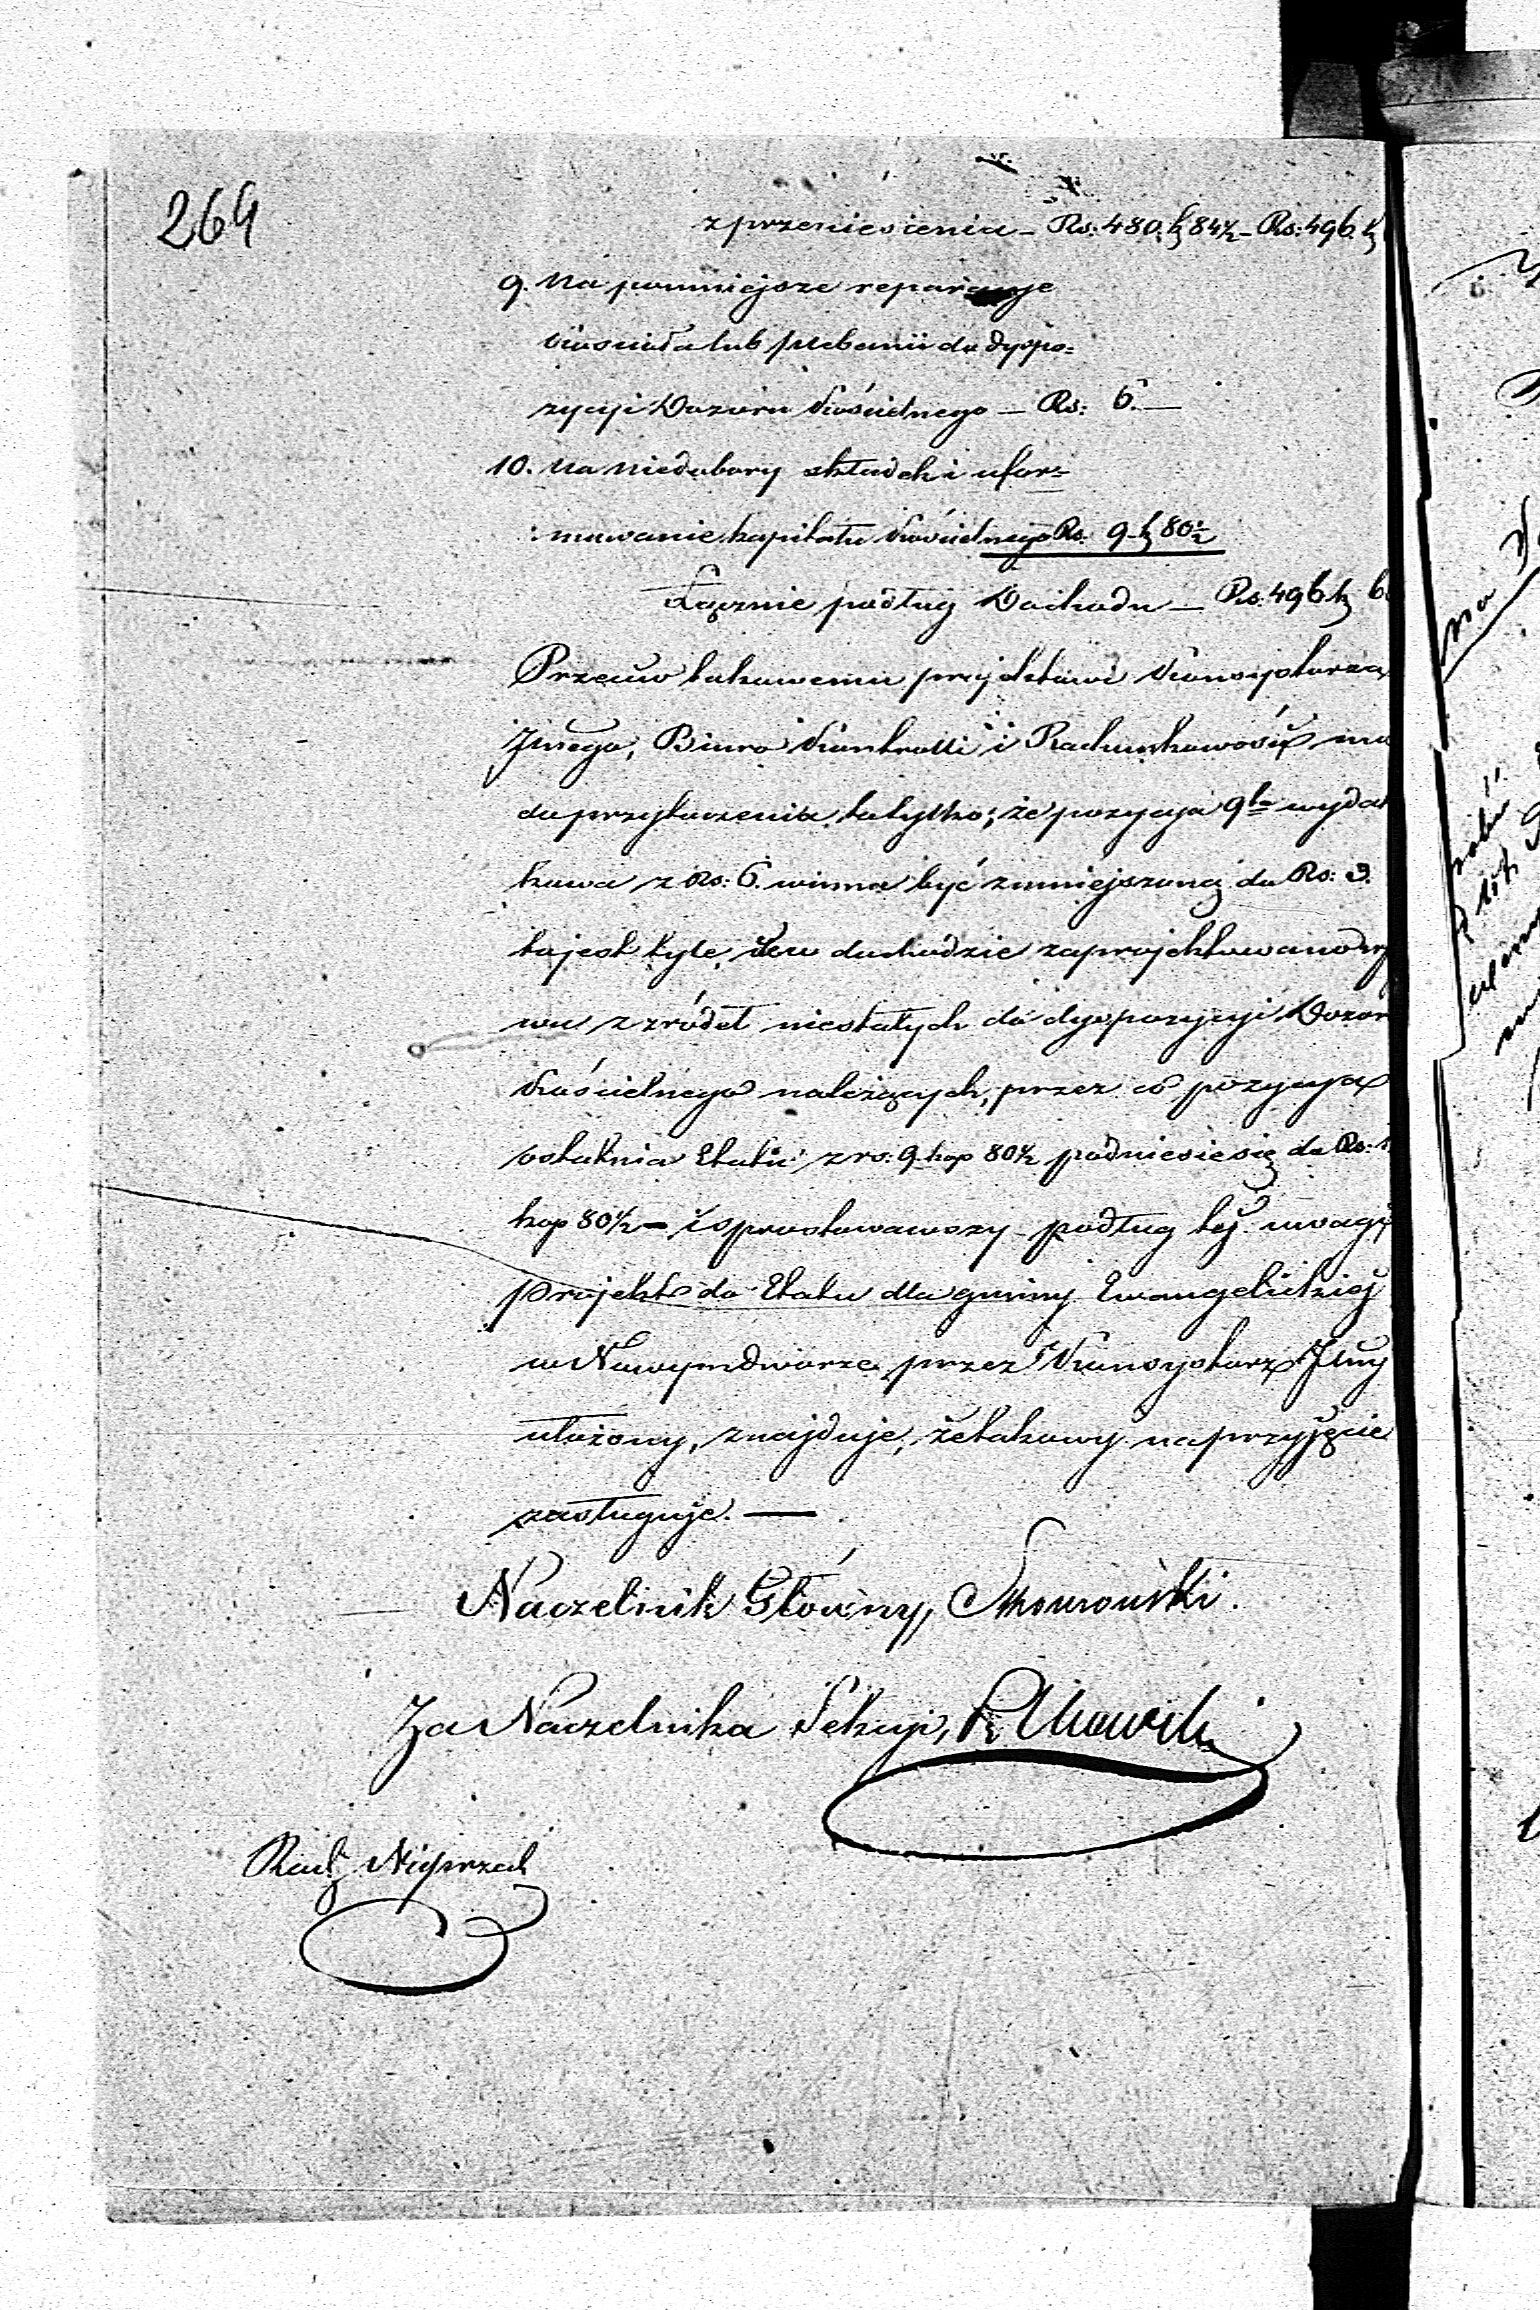 264
z przeniesienia – Rs: 480. k 84½ – Rs: 496. k
9. Na pomniejsze reparacyje
kościoła lub plebanii do dyspo=
zycyi Dozoru Kościelnego – Rs: 6. –
10. Na niedobory składek i ufor=
:mowanie kapitału kościelnego Rs. 9 k 80½
Łącznie podług Dochodu – Rs. 496 k 6
Przeciw takowemu projektowi Konsystorza
Jlnego, Biuro Kontrolli i Rachunkowości ma
do przytoczenia to tylko; że pozycya 9ta wydat
kowa z Rs: 6. winna być zmniejszoną do Rs: 3.
to jest tyle, ile w dochodzie zaprojektowano
wu z źródeł niestałych do dyspozycyi Dozor
Kościelnego należących, przez co pozycya
ostatnia Etatu z rs. 9 kop 80½ podniesie się do Rs:
kop 80½ – i sprostowawszy podług tej uwagi
projekt do Etatu dla gminy Ewangelickiej
w Nowymdworze przez Konsystorz Jlny
ułożony, znajduje, że takowy na przyjęcie
zasługuje. —
Naczelnik Główny,
Za Naczelnika Sekcyi,